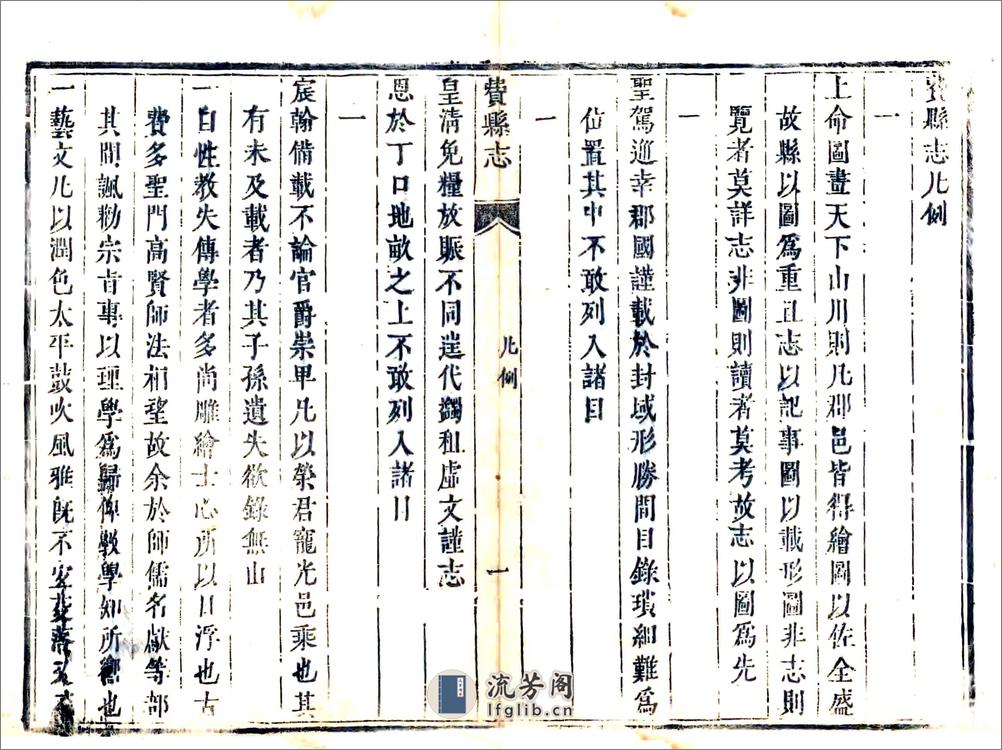 費縣志凡例
一
上命圖畫天下山川則凡郡邑皆得繪圖以佐全盛
故縣以圖爲重且志以記事圖以載形圖非志則
覽者莫詳志非圖則讀者莫考故志以圖爲先
一
聖駕巡幸郡國謹載於封域形勝間目錄瑣細難爲
位置其中不敢列入諸目
一
費縣志
凡例
一
皇清免糧放賑不同逞代蠲租虛文謹志
恩於丁口地畝之上不敢列入諸目
一
宸翰備載不論官爵崇卑凡以榮君寵光邑乘也其
有未及載者乃其子孫遺失欲錄無由
一自性教失傳學者多尚雕繪士心所以日浮也古
費多聖門高賢師法相望故余於師儒名獻等部
其間諷勸宗旨專以理學爲歸俾教學知所嚮也
一藝文凡以潤色太平鼓吹風雅旣不宜
流芳阁
lfglib.cn